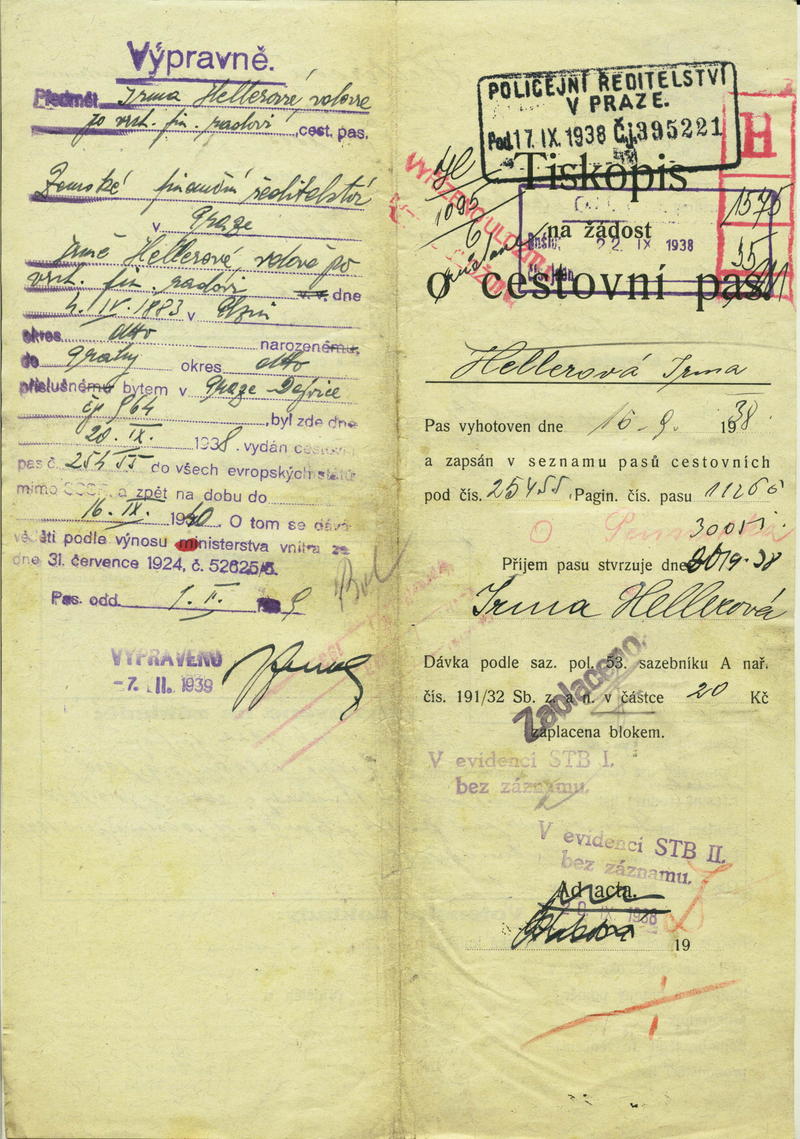 Výpravně.
Předmět Irma Hellerové, vdova
po vrch. fin. radovi, cest. pas.
Zemské finanční ředitelství
v Praze
Irmě Hellerové vdově po
vrch. fin. radovi v.v. dne
4. IV. 1883 v Plzni
okres dtto narozenému,
do Prahy okres dtto
příslušnému bytem v Praze Dejvice
čp 964, byl zde dne
20. IX. 1938. vydán cestovní
pas č. 254 55 do všech evropských států
mimo SSSR a zpět na dobu do
16. IX. 1940. O tom se dává
věděti podle výnosu ministerstva vnitra ze
dne 31. července 1924, č. 52625/5.
Pas. odd. 1. II. 9
VYPRAVENO
-7. II. 1939
POLICEJNÍ ŘEDITELSTVÍ
V PRAZE.
Pod. 17. IX. 1938 Č.j. 395221
H
1575
35
Tiskopis
na žádost
Došlo: 22 IX 1938
o cestovní pas.
Hellerová Irma
Pas vyhotoven dne 16. 9. 1938
a zapsán v seznamu pasů cestovních
pod čís. 25455, Pagin. čís. pasu 11266
Příjem pasu stvrzuje dne 20 19. 38
Irma Hellerová
Dávka podle saz. pol. 53. sazebníku A nař.
čís. 191/32 Sb. z. a n. v částce 20 Kč
Zaplaceno.
zaplacena blokem.
V evidenci STB I.
bez záznamu.
V evidenci STB II.
bez záznamu.
Ad acta.
20 IX 1938
19